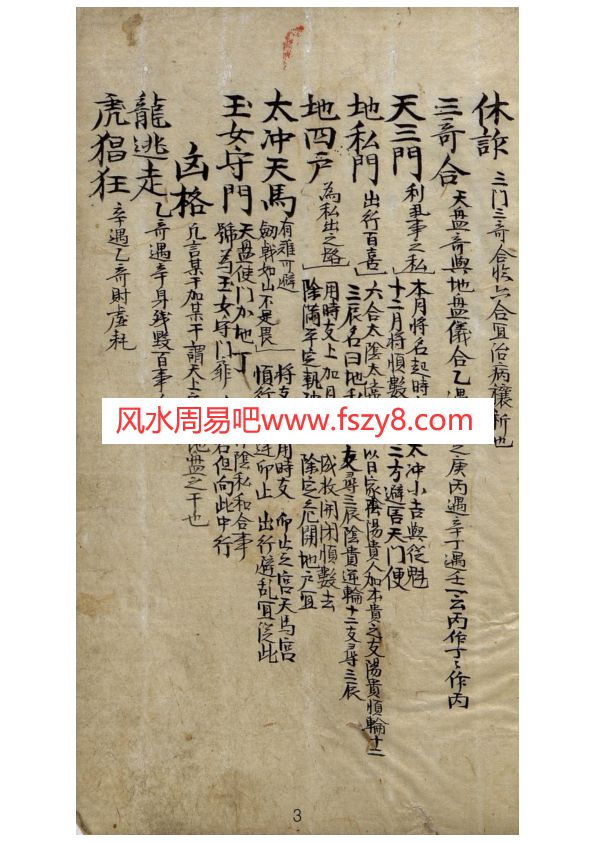 休詐 三門三奇合臨六合宜治病禳祈也
三奇合 天盤奇與地盤儀合乙遇之庚丙遇辛丁遇壬一云丙作丁丁作丙
天三門 利私事之私 本月將名起時 太冲小吉與從魁
十二月將順數 三方避害天门便
地私門 出行百喜 六合太陰太 以日家陰陽貴人加本貴之支陽貴順輪十二
三辰名曰地私 支尋三辰陰貴逆輪十二支尋三辰
地四户 為私出之路 用時支上加月 成收開闭順數去
除滿平定執 除定危開地户宜
太冲天馬 有难可避 劍戟如山不足畏 將支 用時支 卯止之宮天馬宮
順行 逆卯止 出行避乱宜從此
玉女守門 天盤使门加地丁 陰私和合事
號为玉女守门 若但向此中行
凶格 凡言某干加某干謂天上 地盤之干也
龍逃走 乙奇遇辛身殘毀百事
虎猖狂 辛遇乙奇財虛耗
风水周易吧www.fszy8.com
3